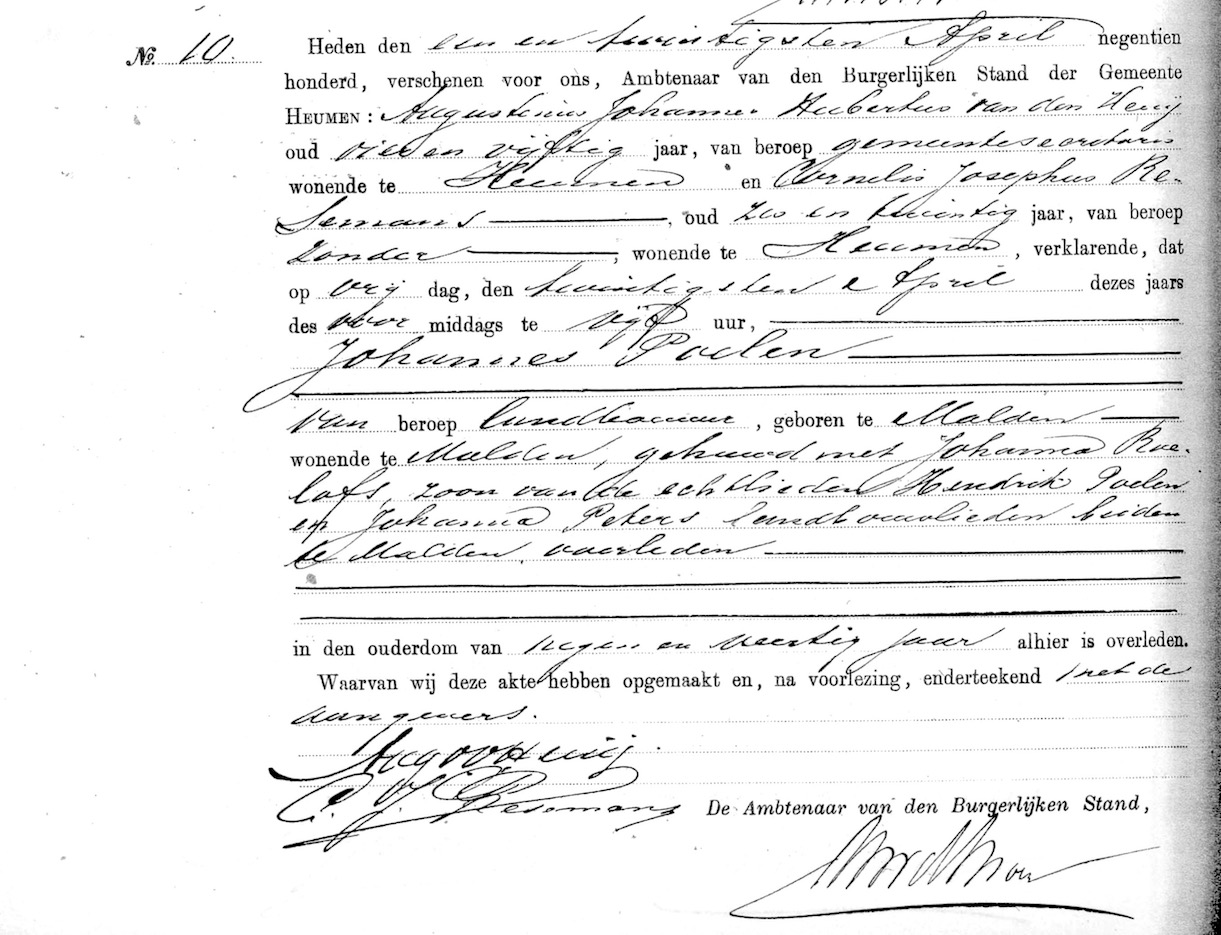 No. 10. Heden den een en twintigsten April negentien
honderd, verschenen voor ons, Ambtenaar van den Burgerlijken Stand der Gemeente
HEUMEN: Augustinus Johannes Hubertus van den
oud vier en vijftig jaar, van beroep gemeentesecretaris
wonende te Heumen en Cornelis Josephus Re-
semans, oud zes en twintig jaar, van beroep
zonder, wonende te Heumen, verklarende, dat
op vrij dag, den twintigsten April dezes jaars
des voor middags te vijf uur,
Johannes Poelen
van beroep landbouwer, geboren te Malden
wonende te Malden, gehuwd met Johanna Roe-
lofs, zoon van de echtlieden Hendrik Poelen
en Johanna Peters landbouwlieden beiden
te Malden overleden
in den ouderdom van negen en veertig jaar alhier is overleden.
Waarvan wij deze akte hebben opgemaakt en, na voorlezing, onderteekend met de
aangevers.
C. J. Resemans
De Ambtenaar van den Burgerlijken Stand,